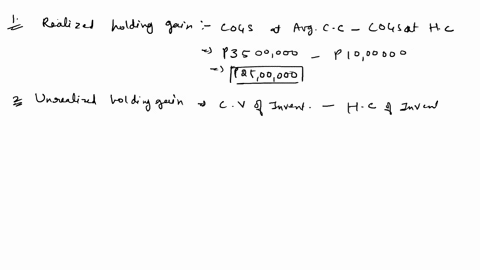 1. Realized holding gain :- COGS at Avg. C.C - COGS at H.C
→ P3500,000 - P10,00000
→ P25,00,000
2 Unrealized holding gain → C.V of Invent. - H.C of Invent